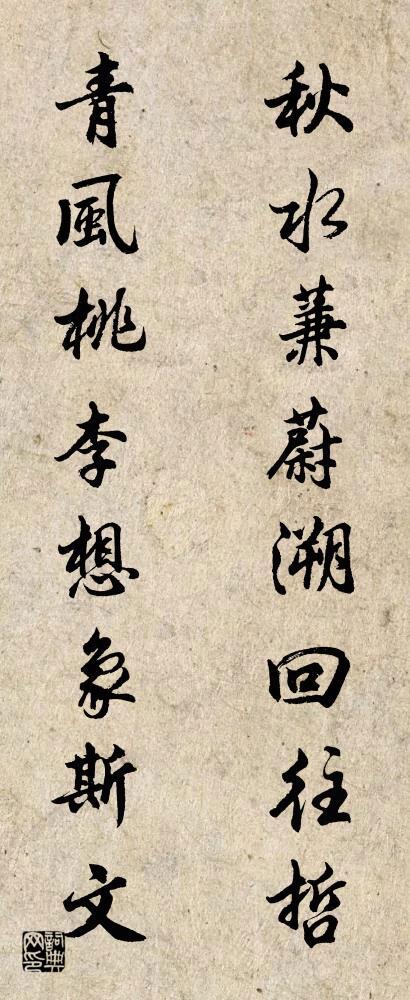 秋水蒹蔚溯回往哲
青風桃李想象斯文
詞典網印